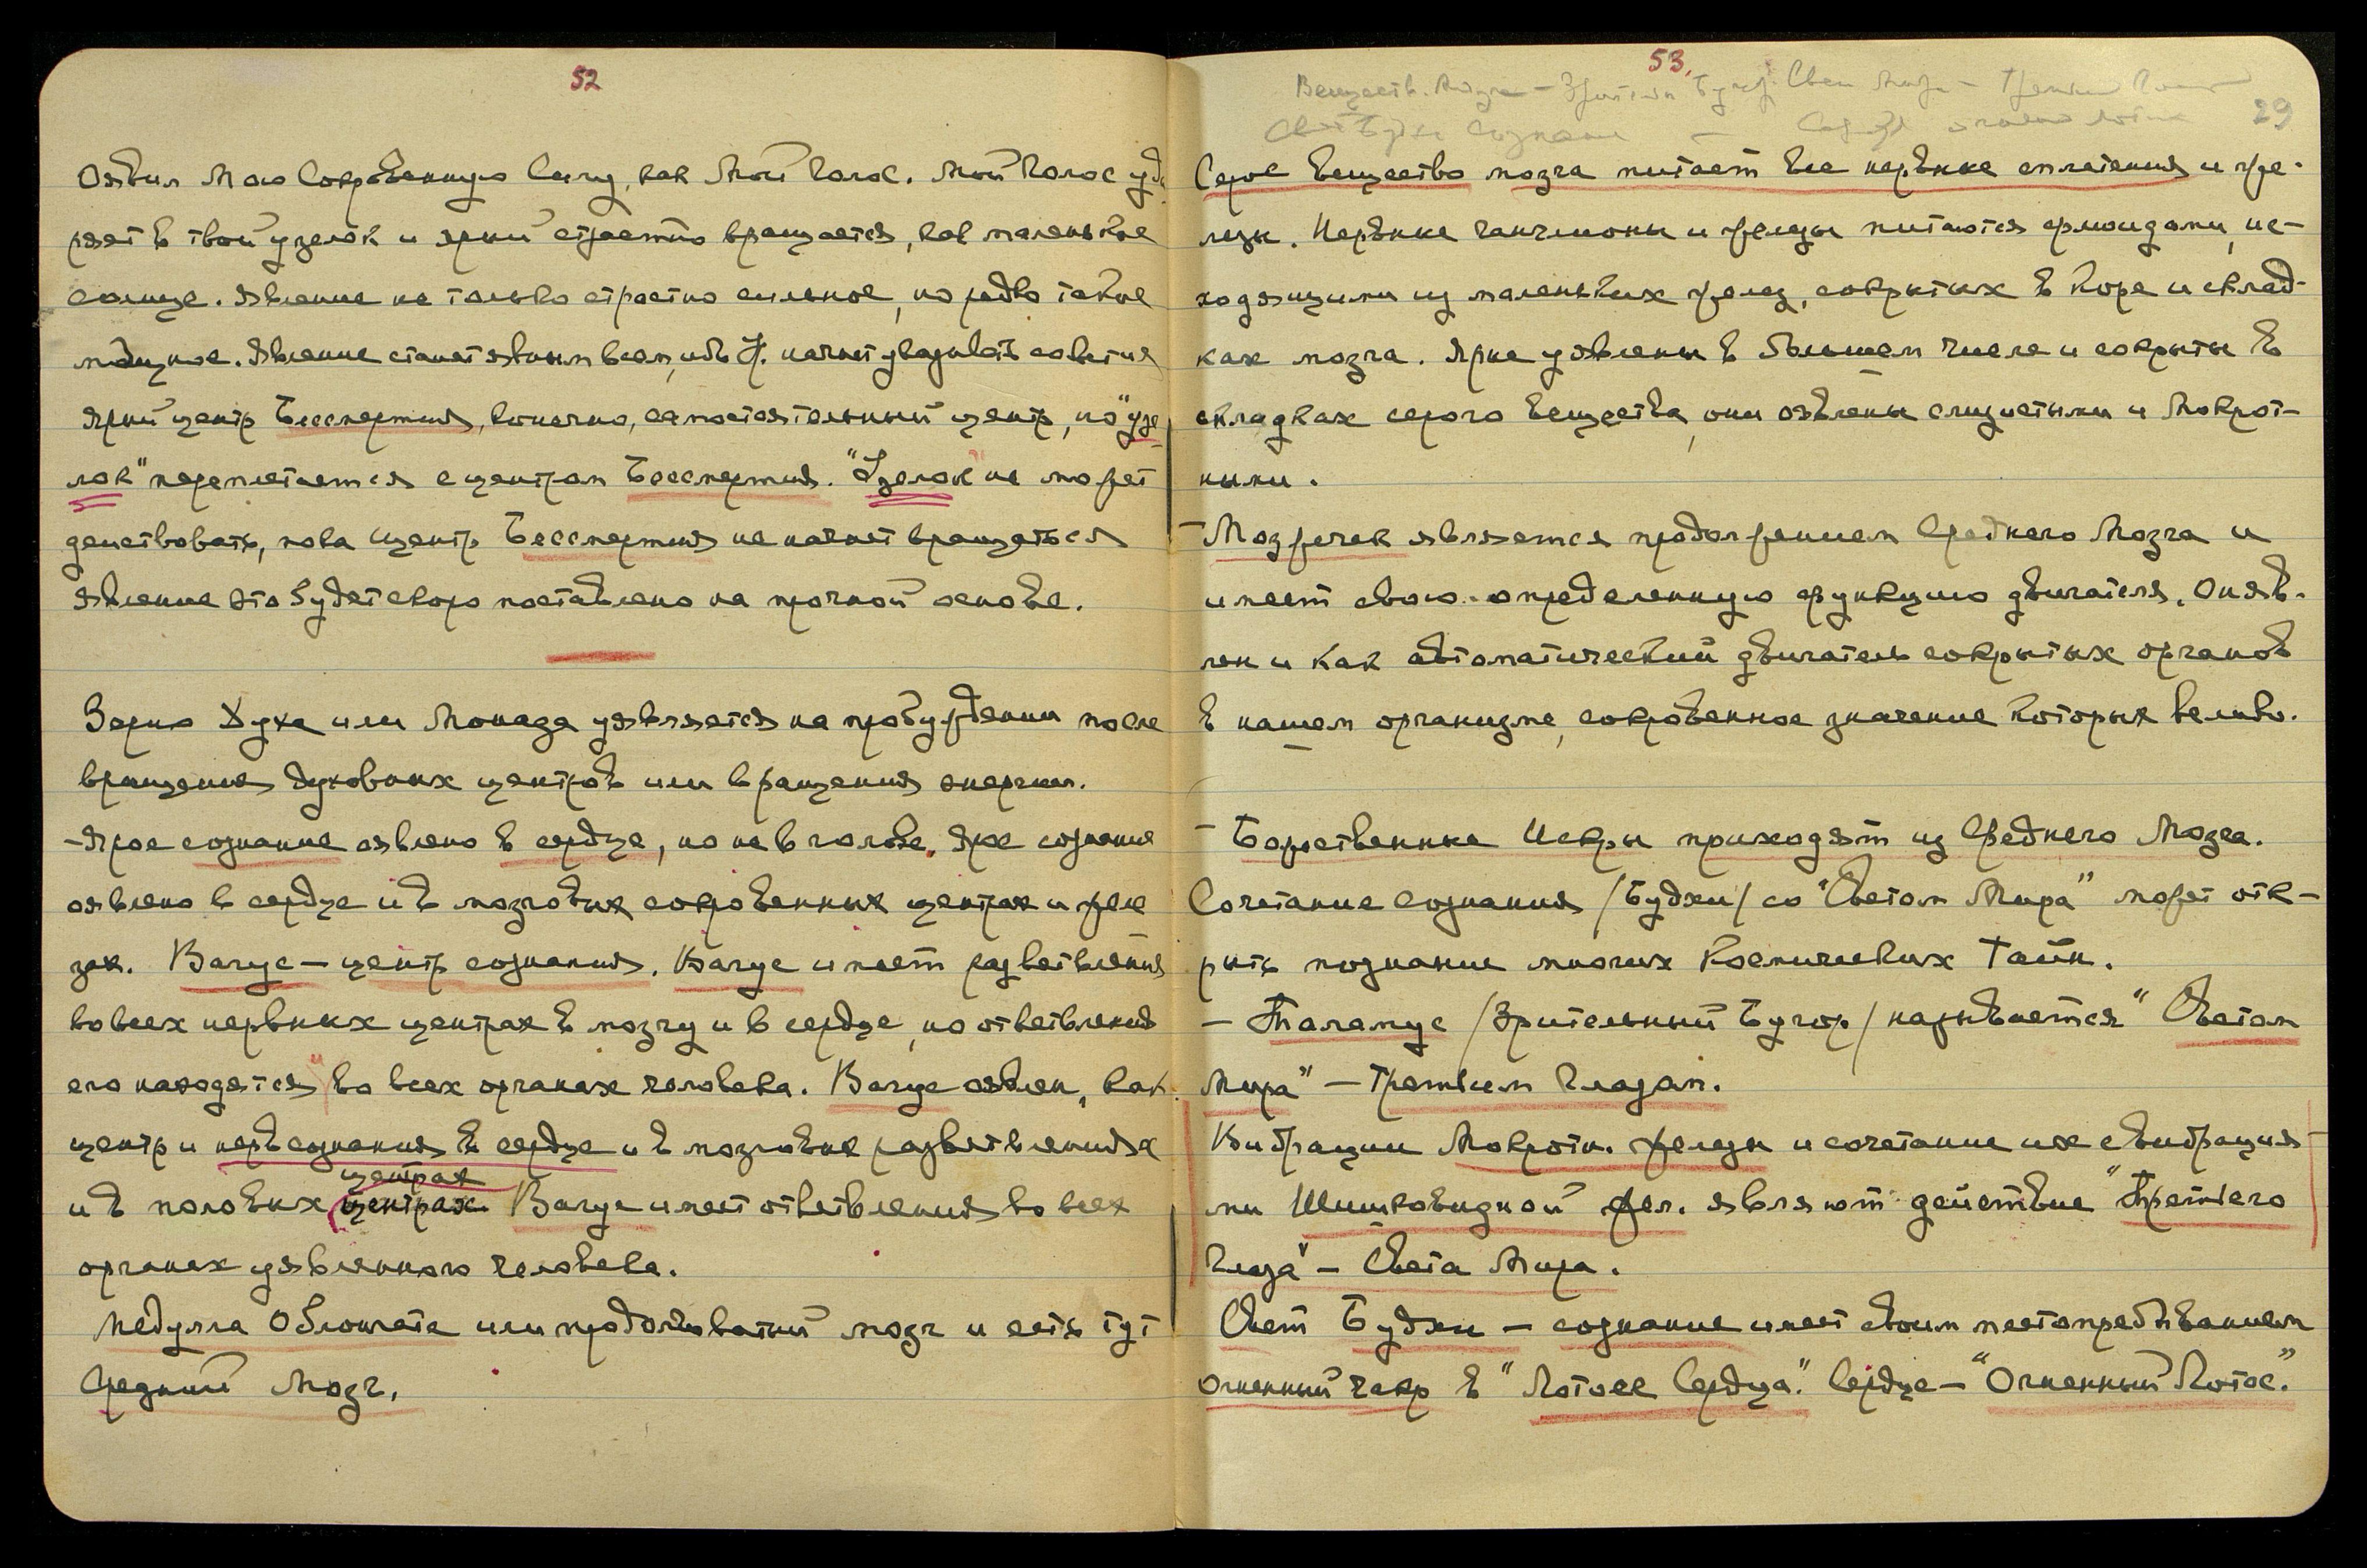 52
Оявил Мою Сокровенную Силу, как Мой Голос. Мой Голос уда-
ряет в твой узелок и ярый страстно вращается, как маленькое
солнце. Явление не только страстно сильное, но редко такое
мощное. Явление станет явным всем, ибо У. начнет уваживать события
Ярый центр Бессмертия, конечно, самостоятельный центр, но "узе-
лок" переплетается с центром Бессмертия. "Узелок" не может
действовать, пока центр Бессмертия не начнет вращаться
явление это будет скоро поставлено на прочной основе.
Зерно Духа или Монада уявляется на пробуждении после
вращения духовных центров или вращения энергии.
-Ярое сознание оявлено в сердце, но не в голове. Ярое сознание
оявлено в сердце и в мозговых сокровенных центрах и желе
зах. Вагус – центр сознания. Вагус имеет разветвления
во всех нервных центрах в мозгу и в сердце, но ответвления
его находятся во всех органах человека. Вагус оявлен, как
центр и нерв сознания в сердце и в мозговых разветвлениях
центрах
и в половых центрах. Вагус имеет ответвления во всех
органах уявленного человека.
Медулла Облонгата или продолговатый мозг и есть тут
Средний Мозг.
53.
29
Серое вещество мозга питает все нервные сплетения и же-
лезы. Нервные ганглионы и железы питаются флюидами, ис-
ходящими из маленьких желез, сокрытых в коре и склад-
ках мозга. Ярые уявлены в большем числе и сокрыты в
складках серого вещества, они оявлены слизистыми и Мокрот-
ными.
– Мозжечек является продолжением Среднего Мозга и
имеет свою определенную функцию двигателя. Он яв-
лен и как автоматический двигатель сокрытых органов
в нашем организме, сокровенное значение которых велико.
– Божественные Искры приходят из Среднего Мозга.
Сочетание Сознания /Будхи/ со "Светом Мира" может отк-
рыть познание многих Космических Тайн.
– Таламус /Зрительный Бугор/ называется "Светом
Мира" – Третьим Глазом.
Вибрации Мокротн. железы и сочетание их с вибрация-
ми Шишковидной жел. являют действие "Третьего
Глаза" – Света Мира.
Свет Будхи – сознание имеет своим местопребыванием
огненный чакр в "Лотосе Сердца". Сердце – "Огненный Лотос."